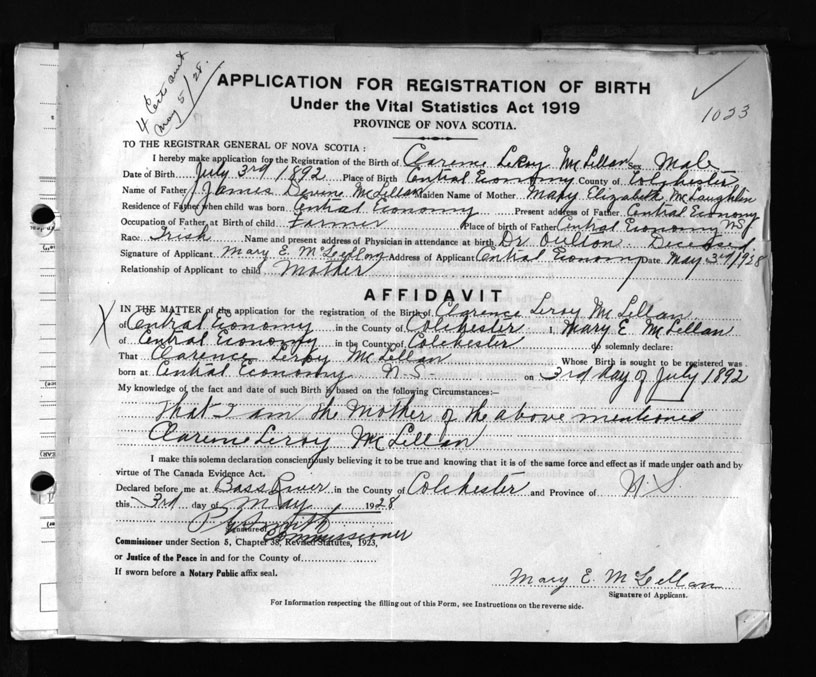 4 Certs
May 5/28.
1023
APPLICATION FOR REGISTRATION OF BIRTH
Under the Vital Statistics Act 1919
PROVINCE OF NOVA SCOTIA.
TO THE REGISTRAR GENERAL OF NOVA SCOTIA :
I hereby make application for the Registration of the Birth of Clarence LeRoy McLellan Sex Male
Date of Birth July 3rd 1892 Place of Birth Central Economy County of Colchester
Name of Father James McLellan Maiden Name of Mother Mary Elizabeth McLaughlin
Residence of Father when child was born Central Economy Present address of Father Central Economy
Occupation of Father at Birth of child Farmer Place of birth of Father Central Economy NS
Race Irish Name and present address of Physician in attendance at birth Dr Oulton Deceased
Signature of Applicant Mary E. McLellan Address of Applicant Central Economy Date May 3rd/1928
Relationship of Applicant to child Mother
AFFIDAVIT
X IN THE MATTER of the application for the registration of the Birth of Clarence Leroy McLellan.
of Central Economy in the County of Colchester I, Mary E. McLellan
of Central Economy in the County of Colchester do solemnly declare:
That Clarence Leroy McLellan Whose Birth is sought to be registered was
born at Central Economy N.S. on 3rd day of July 1892
My knowledge of the fact and date of such Birth is based on the following Circumstances:—
That I am the Mother of the above mentioned
Clarence Leroy McLellan
I make this solemn declaration conscientiously believing it to be true and knowing that it is of the same force and effect as if made under oath and by
virtue of The Canada Evidence Act.
Declared before me at Bass River in the County of Colchester and Province of N.S
this 3rd day of May 1928
Signature of
Commissioner
Commissioner under Section 5, Chapter 38, Revised Statutes, 1923,
or Justice of the Peace in and for the County of
If sworn before a Notary Public affix seal.
Mary E. McLellan
Signature of Applicant.
For Information respecting the filling out of this Form, see Instructions on the reverse side.